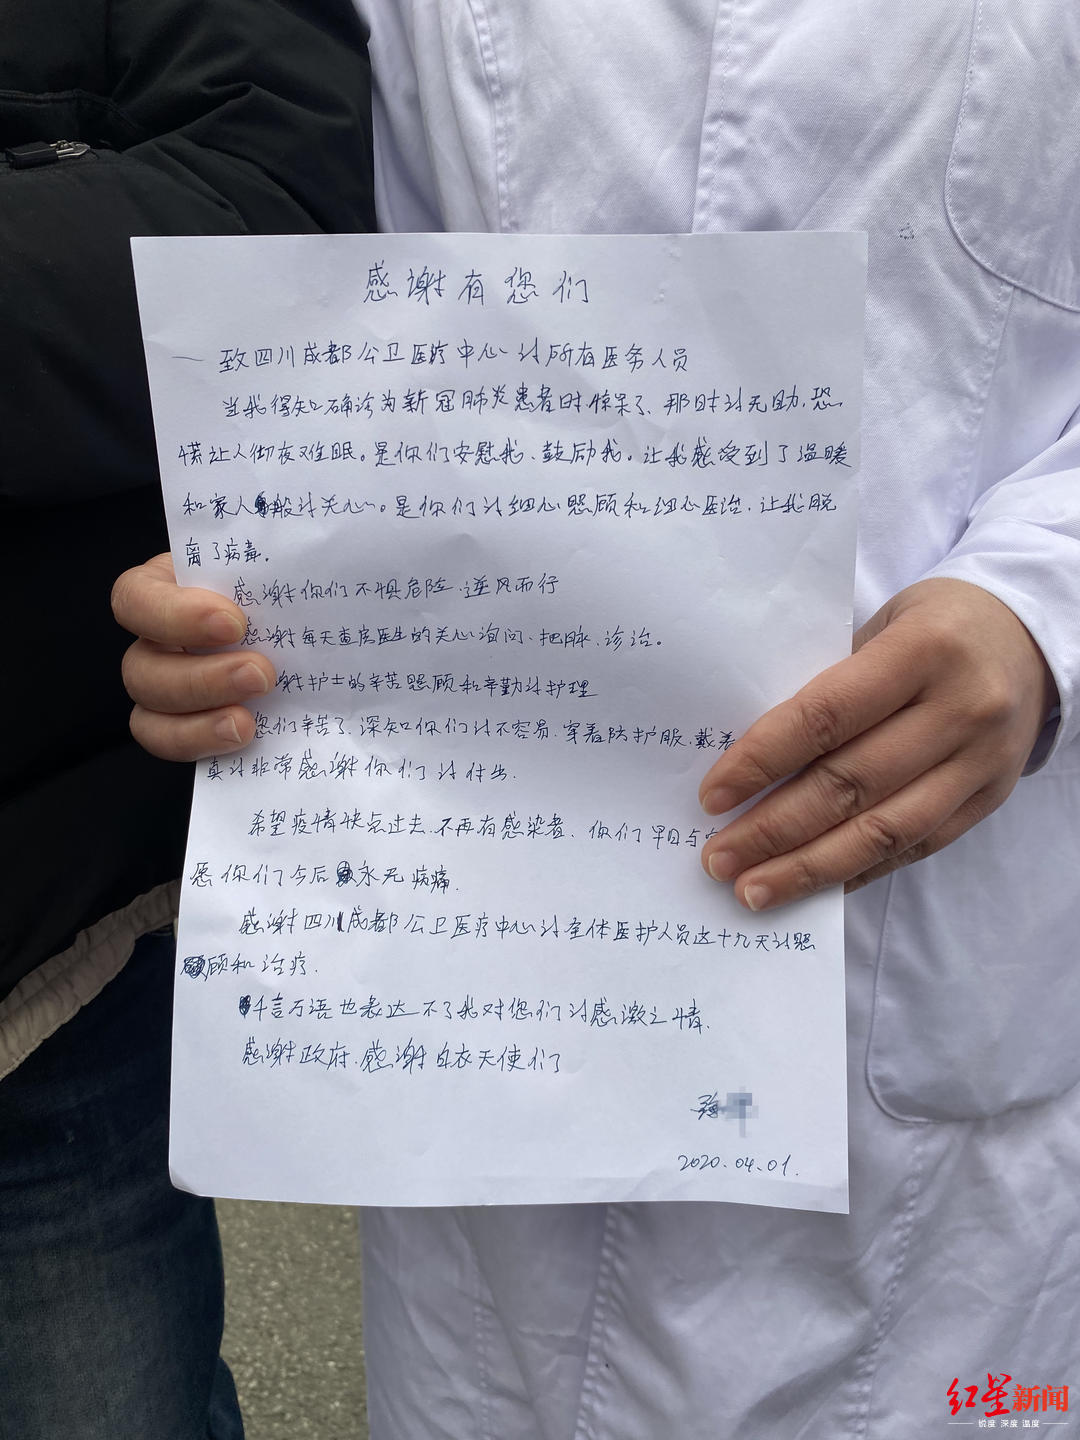 感谢有您们
— 致四川成都公卫医疗中心的所有医务人员
当我得知确诊为新冠肺炎患者时惊呆了、那时的无助、恐
慌让人彻夜难眠。是你们安慰我、鼓励我。让我感受到了温暖
和家人般的关心。是你们的细心照顾和细心医治、让我脱
离了病毒。
感谢你们不惧危险、逆风而行
感谢每天查房医生的关心询问、把脉、诊治。
谢护士的辛苦照顾和辛勤的护理
您们辛苦了、深知你们的不容易、穿着防护服、戴着
真的非常感谢你们的付出.
希望疫情快点过去、不再有感染者、你们早日与
愿你们今后永无病痛.
感谢四川成都公卫医疗中心的全体医护人员这十九天的照
顾和治疗.
千言万语也表达不了我对您们的感激之情.
感谢政府、感谢白衣天使们
2020.04.01.
红星新闻
锐度 深度 温度